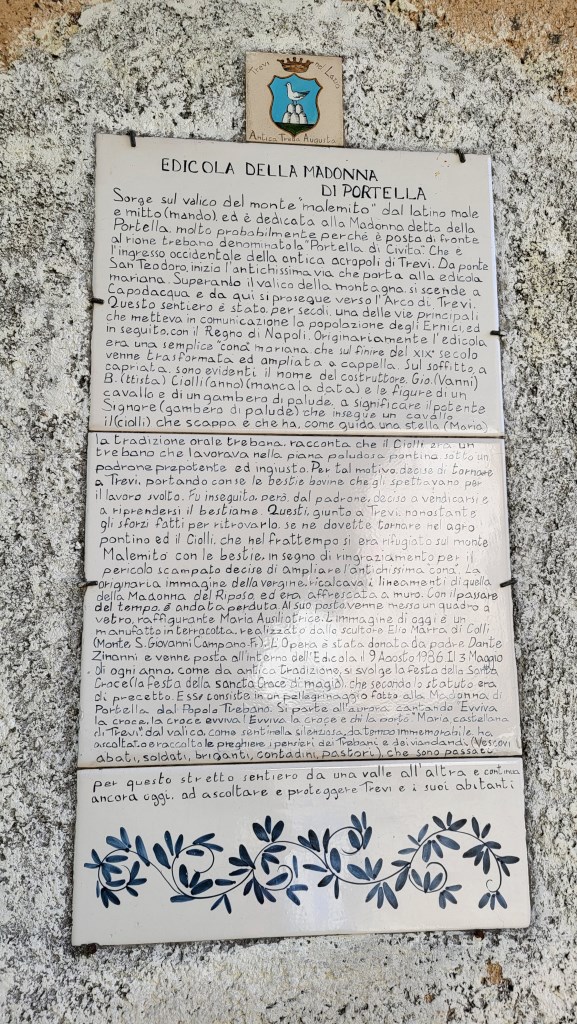 Trevi nel Lazio
Antica Treba Augusta
EDICOLA DELLA MADONNA
DI PORTELLA
Sorge sul valico del monte "malemito" dal latino male
e mitto (mando), ed è dedicata alla Madonna detta della
Portella, molto probabilmente perché è posta di fronte
al rione trebano denominato la "Portella di Civita". Che e
l'ingresso occidentale della antica acropoli di Trevi. Da ponte
San Teodoro, inizia l'antichissima via che porta alla edicola
mariana. Superando il valico della montagna, si scende a
Capodacqua e da qui si prosegue verso l'Arco di Trevi.
Questo sentiero è stato, per secoli, una delle vie principali
che metteva in comunicazione la popolazione degli Ernici, ed
in seguito, con il Regno di Napoli. Originariamente l'edicola
era una semplice "cona" mariana, che sul finire del XIX° secolo
venne trasformata ed ampliata a cappella. Sul soffitto, a
capriata, sono evidenti il nome del costruttore, Gio. (Vanni)
B. (ttista) Ciolli (anno) (manca la data) e le figure di un
cavallo e di un gambero di palude, a significare il potente
Signore (gambero di palude) che insegue un cavallo
il (ciolli) che scappa e che ha, come guida una stella (Maria)
la tradizione orale trebana, racconta che il Ciolli era un
trebano che lavorava nella piana paludosa pontina, sotto un
padrone prepotente ed ingiusto. Per tal motivo, decise di tornare
a Trevi, portando con se le bestie bovine che gli spettavano per
il lavoro svolto. Fu inseguito, però, dal padrone, deciso a vendicarsi e
a riprendersi il bestiame. Questi, giunto a Trevi, nonostante
gli sforzi fatti per ritrovarlo, se ne dovette tornare nel agro
pontino ed il Ciolli, che nel frattempo si era rifugiato sul monte
Malemito con le bestie, in segno di ringraziamento per il
pericolo scampato decise di ampliare l'antichissima "cona". La
originaria immagine della vergine, ricalcava i lineamenti di quella
della Madonna del Riposo ed era affrescata a muro. Con il passare
del tempo, è andata perduta. Al suo posto venne messo un quadro a
vetro, raffigurante Maria Ausiliatrice. L'immagine di oggi è un
manufatto in terracotta, realizzato dallo scultore Elio Marra di Colli
(Monte S. Giovanni Campano-Fr). L'Opera è stata donata da padre Dante
Zinanni e venne posta all'interno dell'Edicola il 9 Agosto 1986. Il 3 Maggio
di ogni anno, come da antica tradizione, si svolge la festa della Santa
Croce (la festa della sancta Croce di magio), che secondo lo statuto era
di precetto. Esse consiste in un pellegrinaggio fatto alla Madonna di
Portella dal Popolo Trebano. Si parte all'aurora cantando "Evviva
la croce, la croce evviva! Evviva la croce e chi la portò" "Maria castellana
di Trevi" dal valico, come sentinella silenziosa, da tempo immemorabile ha
ascoltato e raccolto le preghiere, i pensieri dei Trebani e dei viandanti, (Vescovi
abati, soldati, briganti, contadini, pastori), che sono passati
per questo stretto sentiero da una valle all'altra e continua
ancora oggi, ad ascoltare e proteggere Trevi e i suoi abitanti